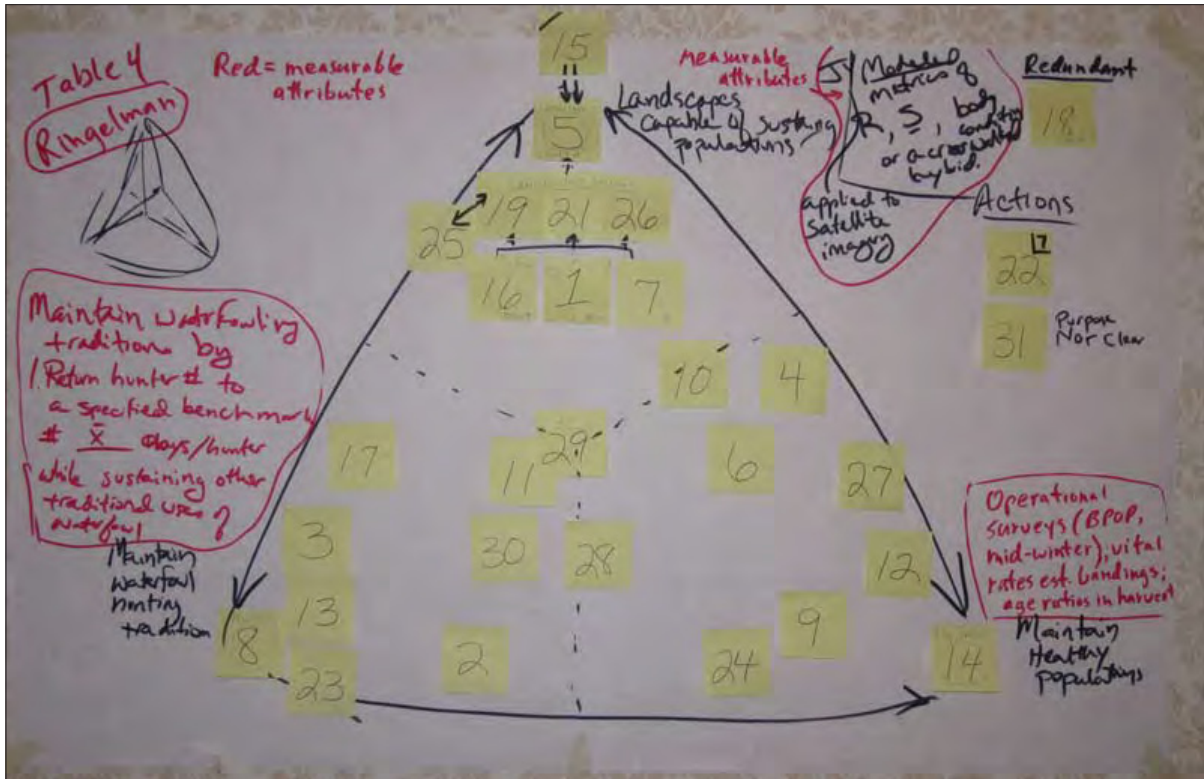 Table 4
Ringelman
Red = measurable
attributes
15
5
Landscapes
Capable of sustaining
populations
measurable
attributes
Modeled
metrics of
R, S, body
condition
or a crosswalked
hybrid.
applied to
Satellite
imagery
Redundant
18
Actions
22
7
31
Purpose
Not Clear
19
21
26
25
16
1
7
10
4
29
17
11
6
27
3
30
28
12
13
9
8
2
24
14
23
Maintain waterfowling
traditions by
1. Return hunter # to
a specified benchmark
# x̄ days/hunter
while sustaining other
traditional uses of
waterfowl
Maintain
waterfowl
hunting
tradition
Operational
surveys (BPOP,
mid-winter), vital
rates est. bandings;
age ratios in harvest
Maintain
Healthy
populations